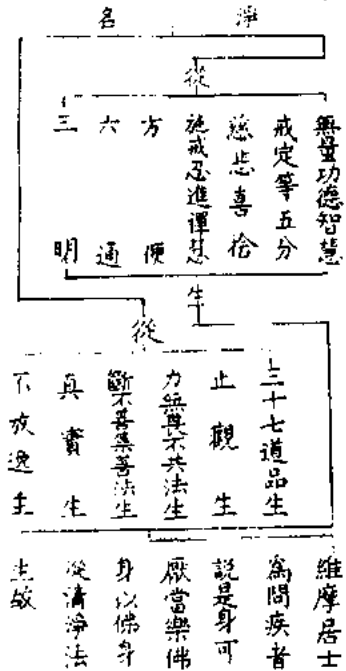 淨名
從
無量功德智慧
戒定等五分
慈悲喜捨
施戒忍進禪慧
方便
六通
三明
生
從
三十七道品生
止觀生
力無畏不共法生
斷不善集善法生
真實生
不放逸生
維摩居士
為問疾者
說是身可
厭當樂佛
身以佛身
從清淨法
生故